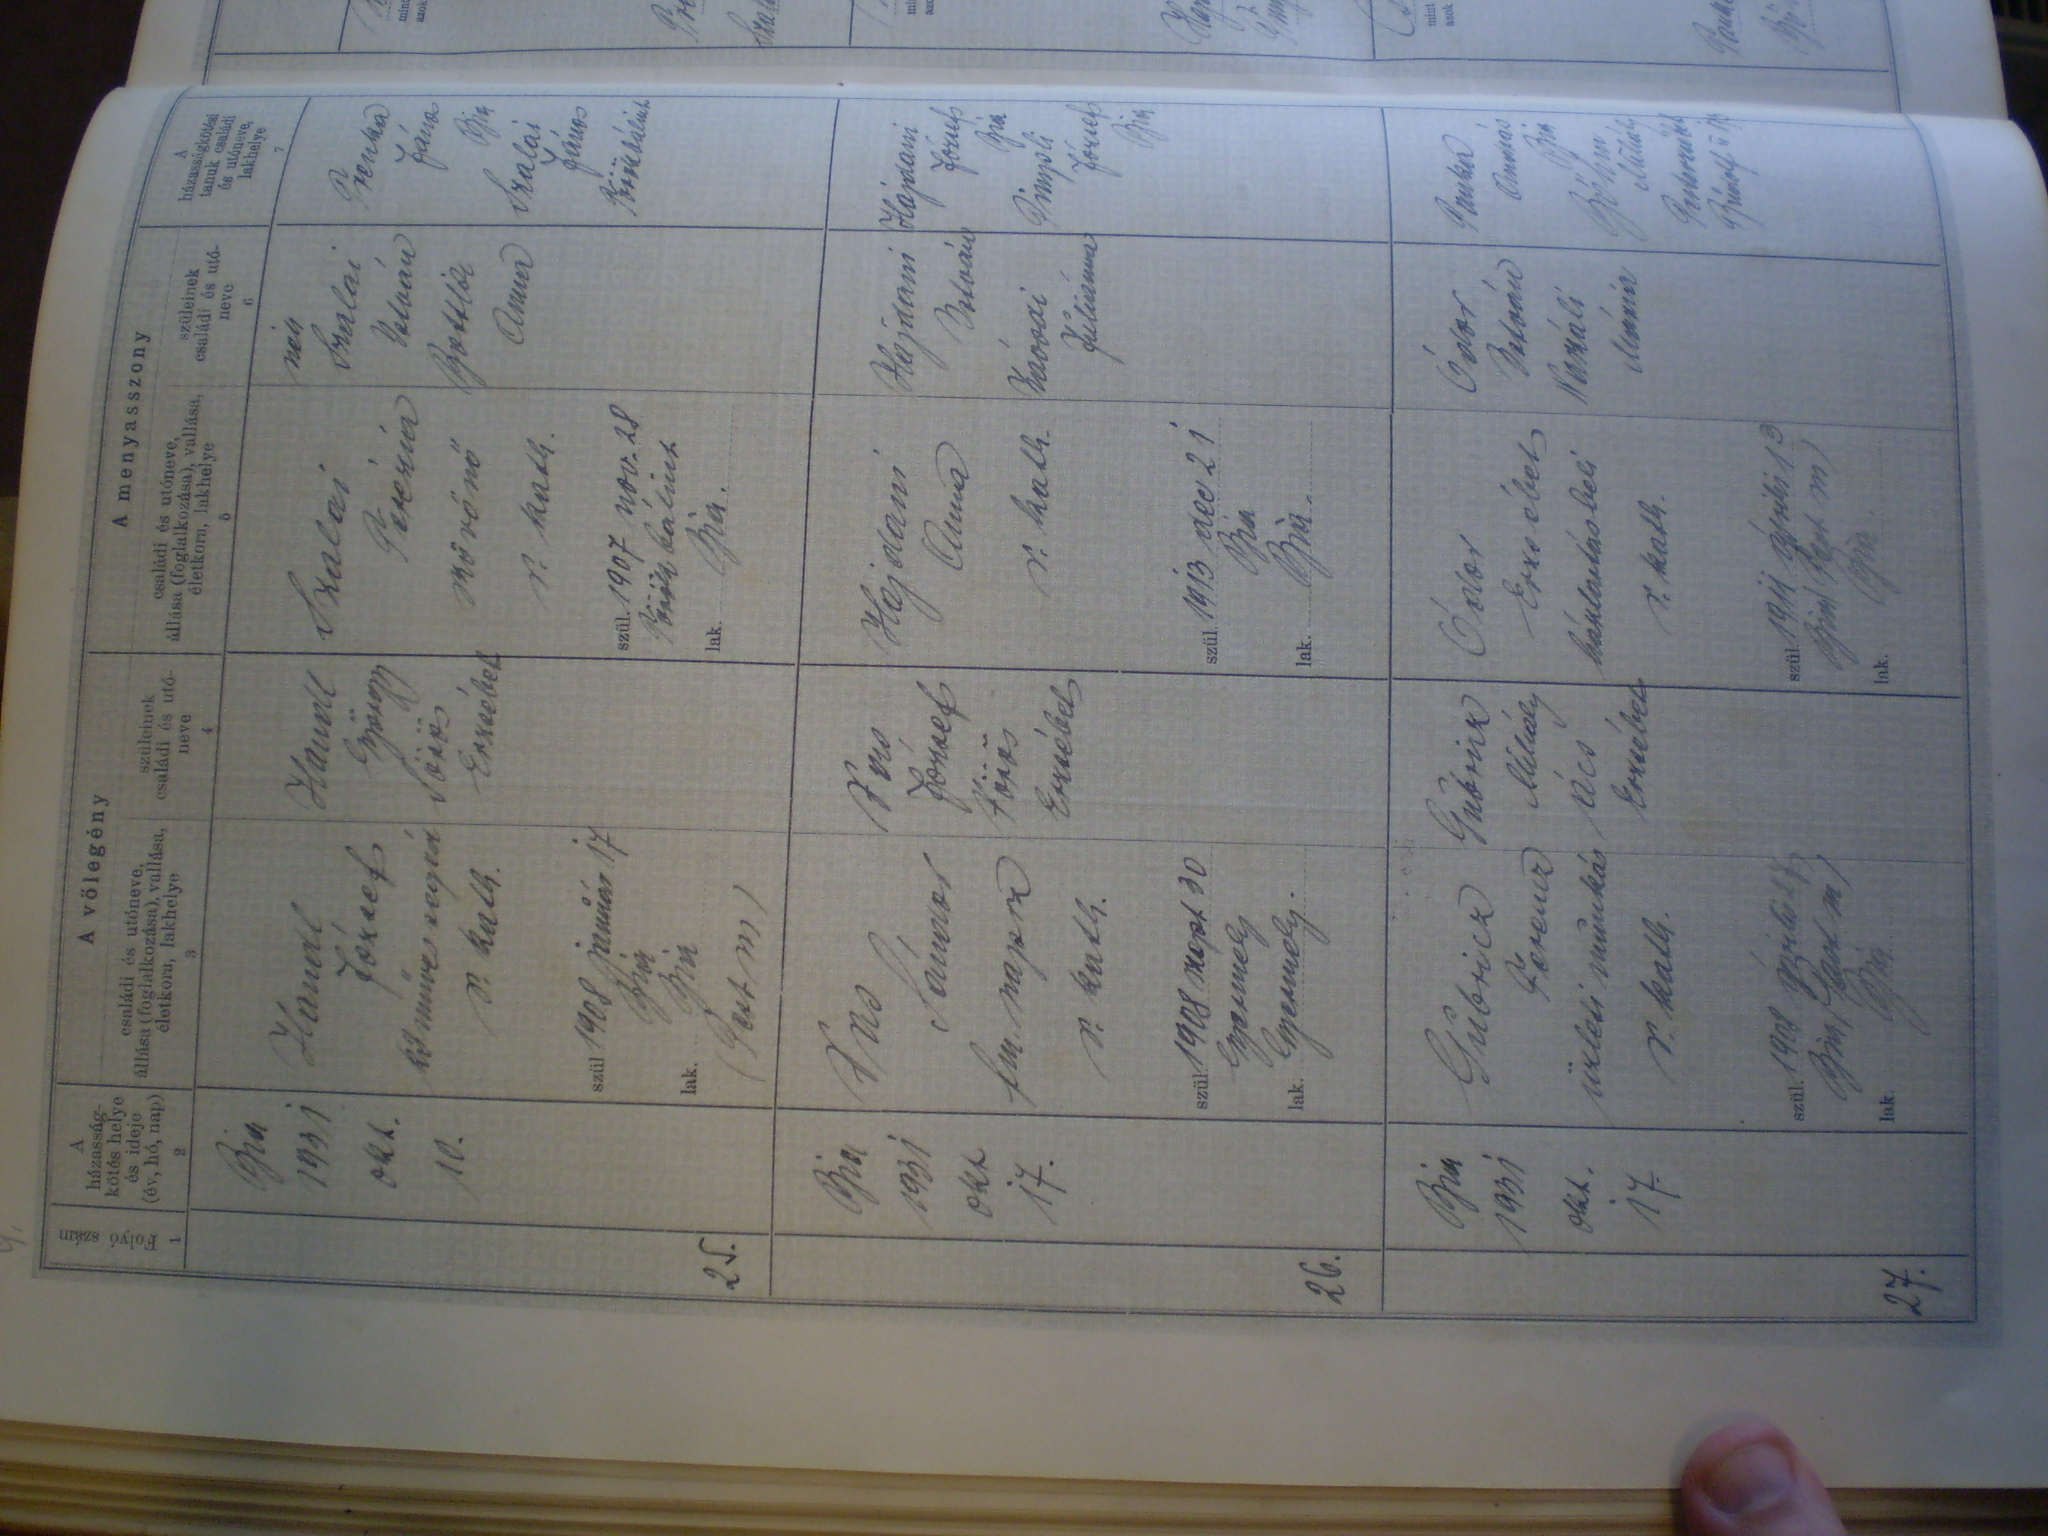 A vőlegény
A menyasszony
Folyó szám
1
A házasság-
kötés helye
és ideje
(év, hó, nap)
2
családi és utóneve,
állása (foglalkozása), vallása,
életkora, lakhelye
3
szüleinek
családi és utó-
neve
4
családi és utóneve,
állása (foglalkozása), vallása,
életkora, lakhelye
5
szüleinek
családi és utó-
neve
6
A
házasságkötési
tanuk családi
és utóneve,
lakhelye
7
25.
Bia
1931
okt.
10.
Handl
József
kőműves segéd
r. kath.
szül 1908 január 17
Bia
lak. Bia
(Pest m)
Handl
György
Vörös
Erzsébet
Szalai
Terézia
szövőnő
r. kath.
szül. 1907 nov. 28
Törökbálint
lak. Bia.
néh
Szalai
István
Anna
János
Bia
Szalai
János
Törökbálint
26.
Bia
1931
okt
17.
Sándor
fm. napsz
r. kath.
szül. 1908 szept 30
Gyermely
lak. Gyermely.
József
Vörös
Erzsébet
Hajdani
Anna
r. kath.
szül. 1913 dec 21
Bia
lak. Bia.
Hajdani
István
Juliánna
Hajdani
József
Bia
József
Bia
27.
Bia
1931
okt.
17.
Gubricz
Ferencz
üzleti munkás
r. kath.
szül. 1908 április 27
Bia (Pest m)
lak. Bia
Gubricz
Mihály
Ács
Erzsébet
Ódor
Erzsébet
háztartásbeli
r. kath.
szül. 1911 április 13
Bia (Pest m)
lak. Bia.
Ódor
István
Mária
András
Bia
mint
azok